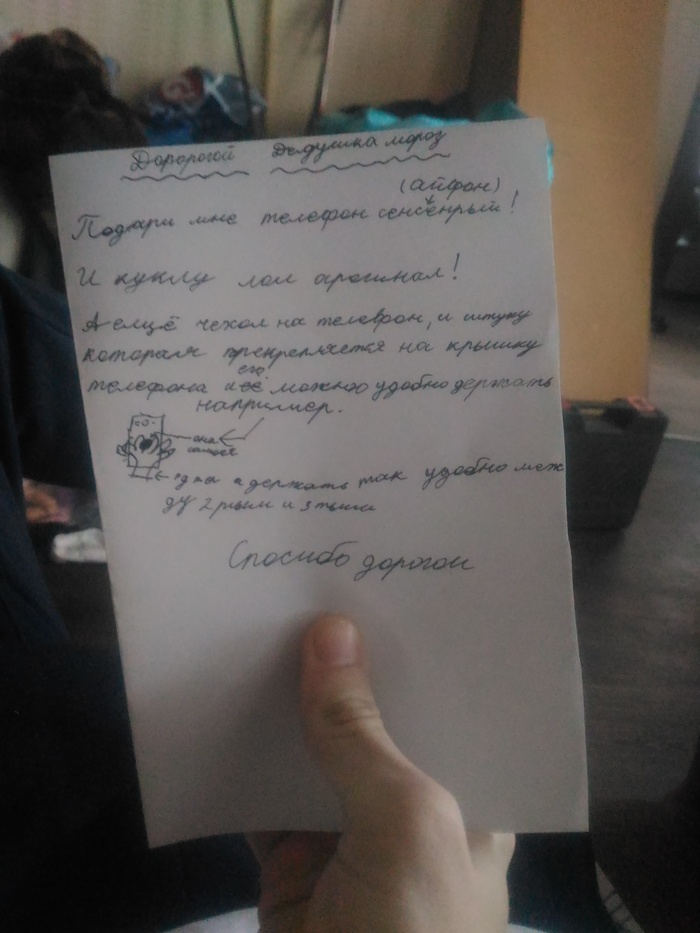 Доророгой Дедушка мороз
(айфон)
Подари мне телефон сенсенрый!
И куклу лол аригинал!
А ещё чехол на телефон, и штуку
которая прекрепляется на крышку
телефона и её можно удобно держать
например.
она
держать так удобно меж
ду 2 рым и 3 тьим
Спосибо дорогой